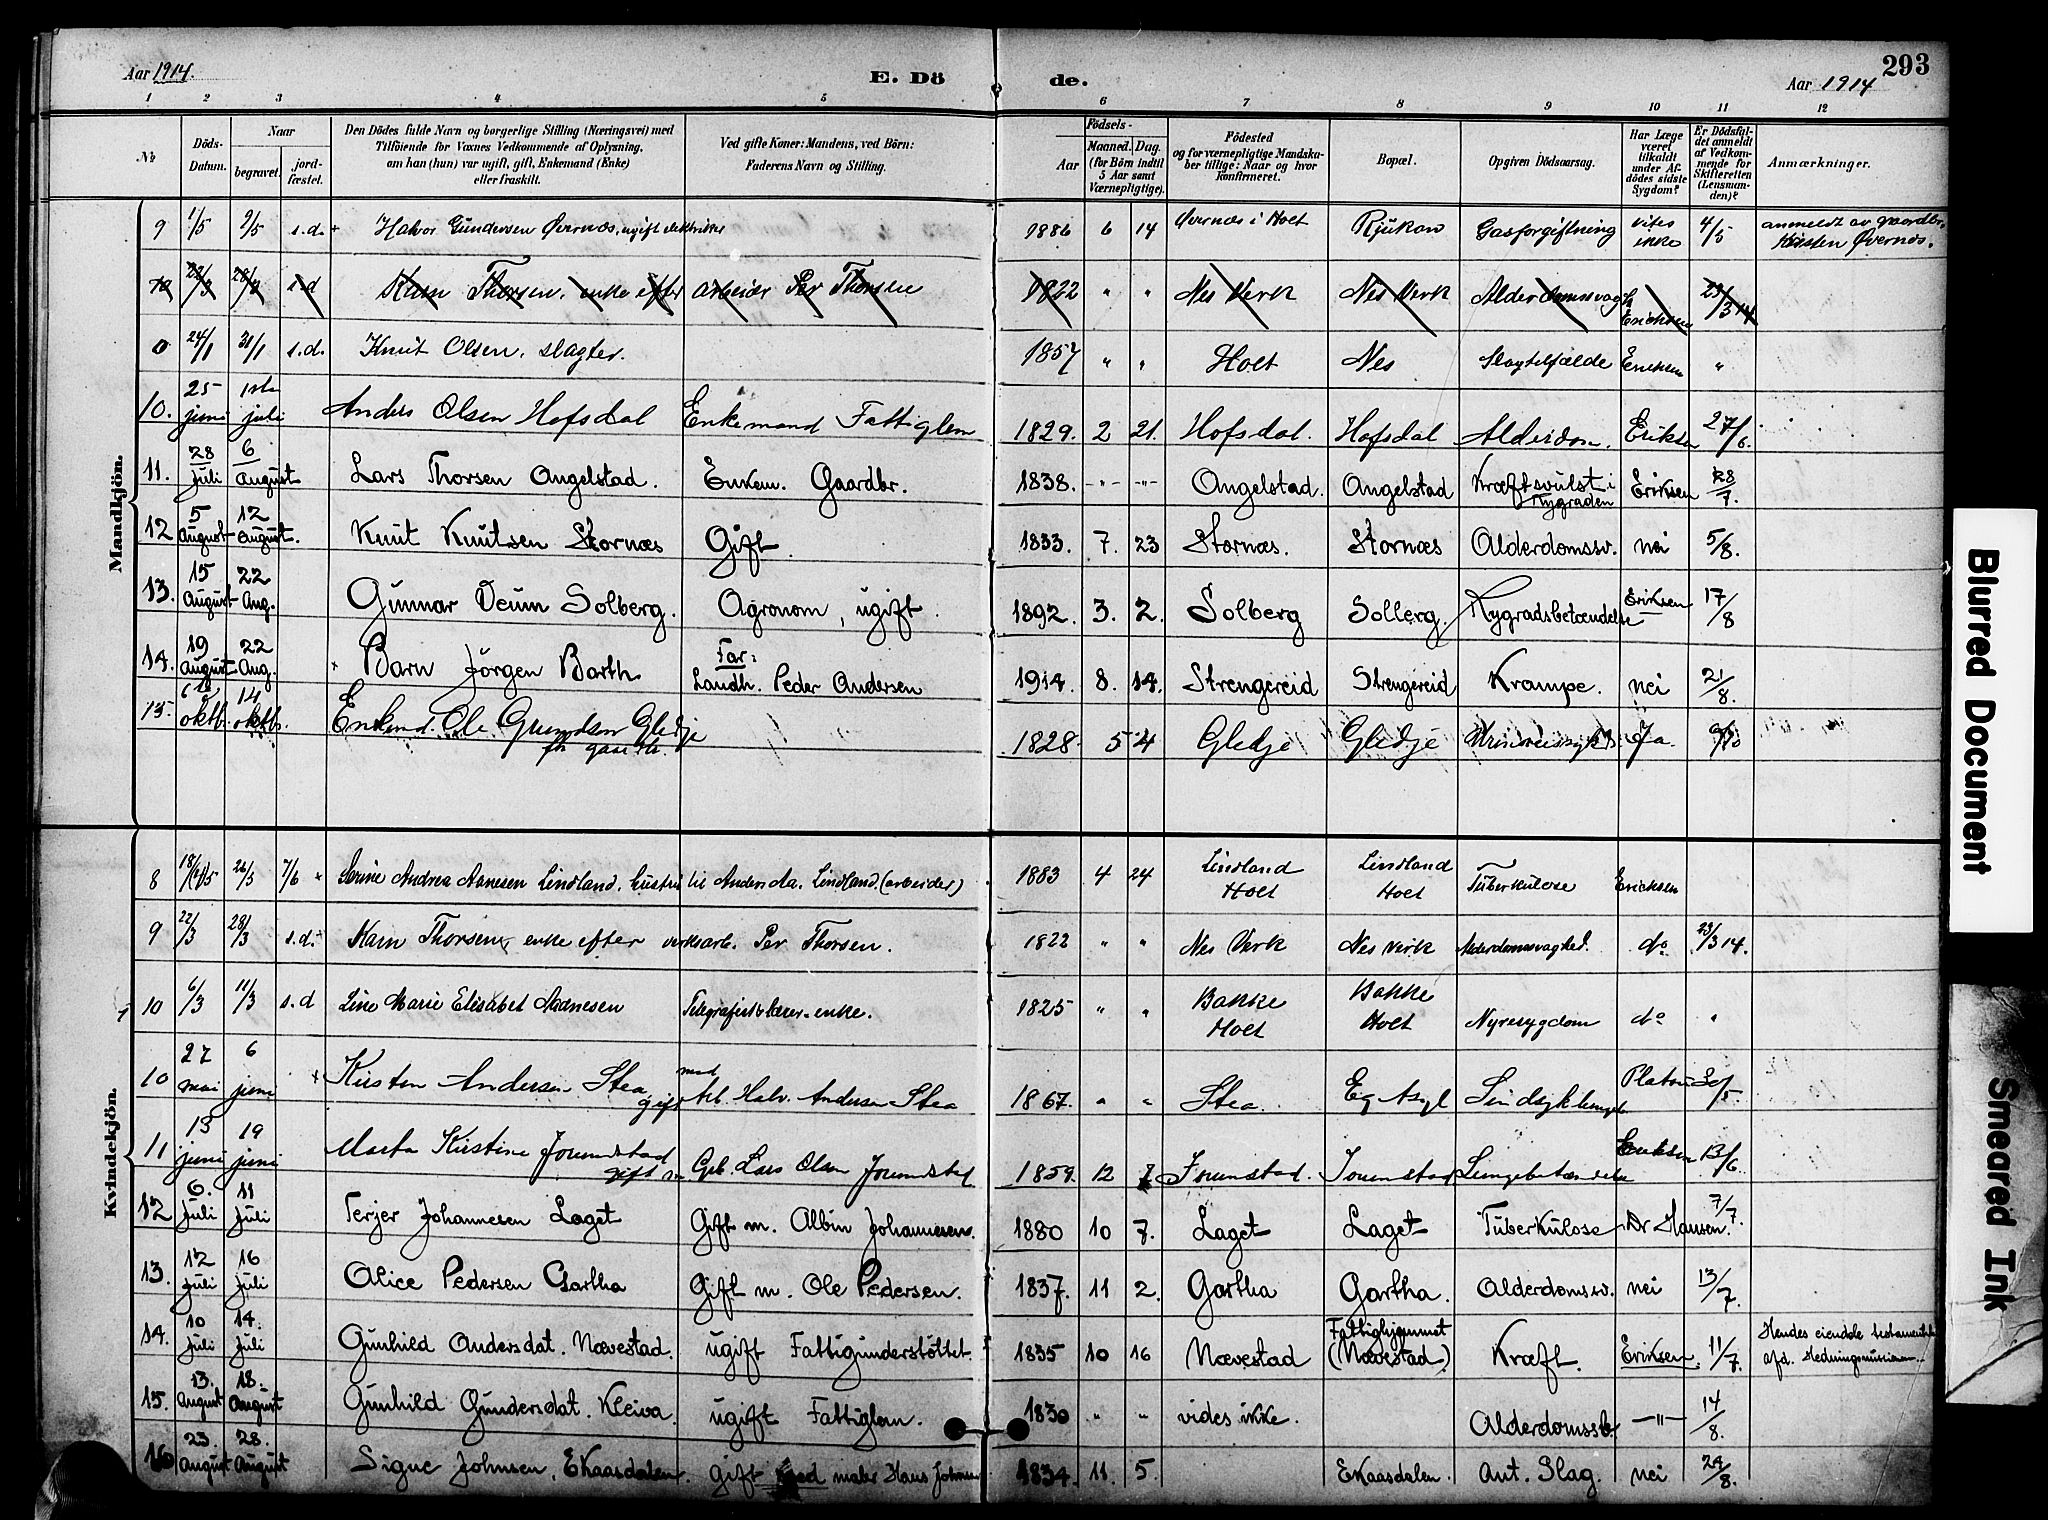 Aar 1914. E. Dö de. Aar 1914 293
1 2 3 4 5 6 7 8 9 10 11 12
No Döds-Datum. Naar begravet. jordfæstet. Den Dödes fulde Navn og borgerlige Stilling (Næringsvei) med Tilföiende for Voxnes Vedkommende af Oplysning, om han (hun) var ugift, gift, Enkemand (Enke) eller fraskilt. Ved gifte Koner: Mandens, ved Börn: Faderens Navn og Stilling. Födsels- Aar Maaned. Dag. (for Börn indtil 5 Aar samt Værnepligtige). Födested og for værnepligtige Mandskaber tillige: Naar og hvor konfirmeret. Bopæl. Opgiven Dödsaarsag. Har Læge været tilkaldt under Afdödes sidste Sygdom? Er Dödsfaldet anmeldt af Vedkommende for Skifteretten (Lensmanden)? Anmærkninger.
Mandkjön.
9 1/5 9/5 s.d. + Halvor Gundersen Øvernæs, ugift elektriker 1886 6 14 Øvernæs i Holt Rjukan Gasforgiftning vites ikke 4/5 anmeldt av gaardbr. Kristen Øvernæs.
10 22/3 28/3 s.d Karn Thorsen, enke efter arbeider Per Thorsen 1822 " " Nes Verk Nes Verk Alderdomssvagh. Ericksen 23/3 14
0 24/1 31/1 s.d. Knut Olsen, slagter. 1857 " " Holt Nes Slagtilfælde Ericksen "
10. 25 juni 1ste juli Anders Olsen Hofsdal Enkemand Fattiglem 1829. 2 21. Hofsdal. Hofsdal Alderdom. Eriksen 27/6.
11. 28 Juli 6 August Lars Thorsen Angelstad. Enkem. Gaardbr. 1838. -"- -"- Angelstad. Angelstad Kræftsvulst i Rygraden Eriksen 28/7.
12 5 August 12 August. Knut Knutsen Stornæs Gift. 1833. 7. 23 Stornæs. Stornæs Alderdomssv. nei 5/8.
13. 15 August 22 Aug. Gunnar Veum Solberg. Agronom, ugift. 1892. 3. 2. Solberg Solberg. Rygradsbetændelse Eriksen 17/8
14. 19 August 22 Aug. + Barn Jörgen Barth Far: Landh. Peder Andersen 1914. 8. 14. Strengereid Strengereid Krampe. nei 21/8.
15. 6 oktb. 14 oktb. Enkemd. Ole Gundersen Gledje 1828. 5 4 Gledje Gledje Urinveissygd. Ja
Kvindekjön.
8 26/5 7/6 + Serine Andrea Aanesen Lindland, hustru til Anders Aa. Lindland. (arbeider) 1883 4 24 Lindland Holt Lindland Holt Tüberkulose Ericksen
9 22/3 28/3 s.d. Karn Thorsen, enke efter verksarb. Per Thorsen. 1822 " " Nes Verk Nes Verk Alderdomsvaghed. do 23/3 14.
10 6/3 11/3 s.d Line Marie Elisabet Aadnesen Telegrafist & lærer-enke. 1825 " " Bakke Holt Bakke Holt Nyresygdom do "
10 27 mai 6 juni + Kirsten Andersen Stea gift med Arb. Halv. Andersen Stea 1867. " " Stea. Eg Asyl Sindsyk Platou 30/5
11 13 juni 19 juni Marta Kirstine Jorunstad gift m Grb. Lars Olsen Jorunstad 1859. 12 Jorunstad. Jorunstad Lungebetændelse Eriksen 13/6.
12 6. Juli 11 Juli Terjer Johannesen Laget Gift m. Albin Johannesens. 1880 10 7. Laget Laget Tüberkülose Dr Hansen. 7/7.
13. 12 Juli 16 Juli Alice Pedersen Gartha Gift m. Ole Pedersen. 1837. 11 2. Gartha Gartha. Alderdomssv. nei 13/7.
14. 10 Juli 14. Juli Gunhild Andersdat. Nævestad. ugift Fattigunderstöttet. 1835 10 16 Nævestad Fattighjemmet (Nævestad) Kræft. Eriksen. 11/7. Hendes eiendele testamentert afd. Hedningmissionen
15. 13. August 18. August Gunhild Gundersdat. Kleiva. ugift Fattiglem. 1830 " " vides ikke. Alderdomssv. -"- 14/8.
16 23. August 28. August Signe Johnsen, Ekaasdalen. gift med maler Hans Johnsen 1834. 11. 5. Ekaasdalen. Ant. Slag. nei 24/8.
Blurred Document
Smeared Ink